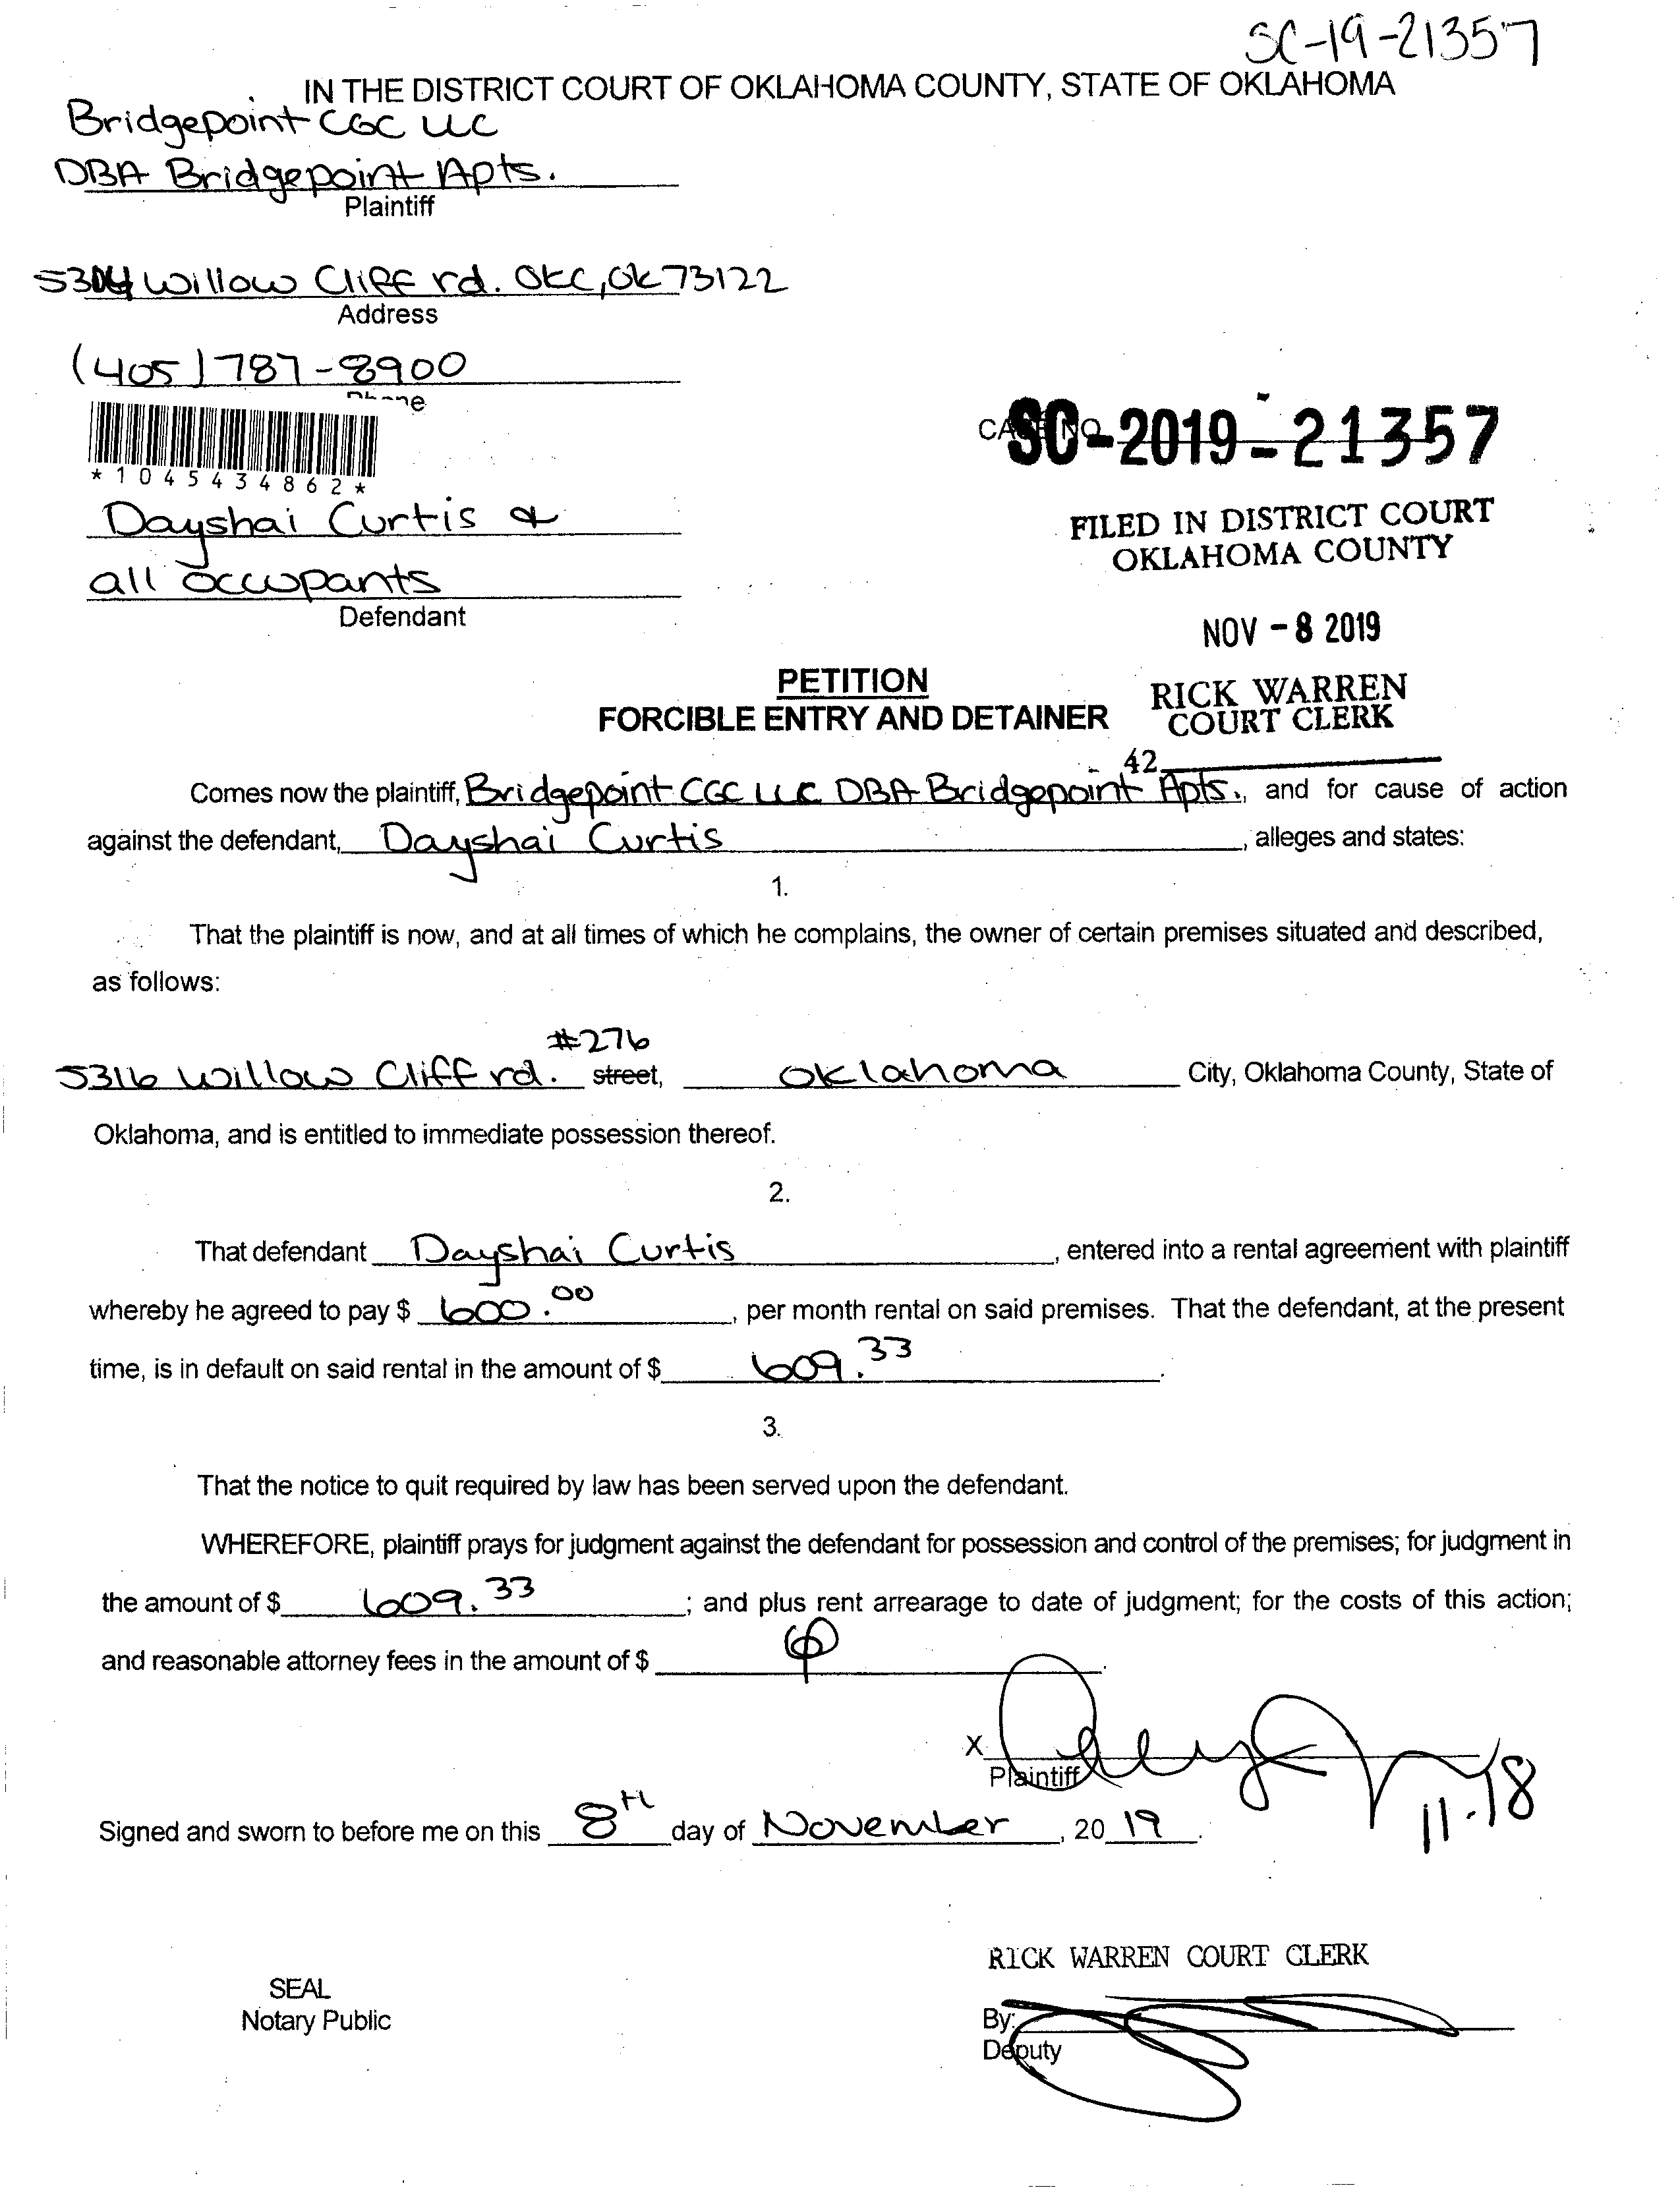 SC-19-21357
IN THE DISTRICT COURT OF OKLAHOMA COUNTY, STATE OF OKLAHOMA
Bridgepoint CGC LLC
DBA Bridgepoint Apts.
Plaintiff
Willow Cliff rd. OKC, OK 73122
Address
(405) 787-8900
Phone
*1045434862*
CASE NO. SC-2019-21357
FILED IN DISTRICT COURT
OKLAHOMA COUNTY
Dayshai Curtis &
all occupants
Defendant
NOV -8 2019
RICK WARREN
COURT CLERK
42
PETITION
FORCIBLE ENTRY AND DETAINER
Comes now the plaintiff, Bridgepoint CGC LLC DBA Bridgepoint Apts., and for cause of action
against the defendant, Dayshai Curtis, alleges and states:
1.
That the plaintiff is now, and at all times of which he complains, the owner of certain premises situated and described,
as follows:
#276
5316 Willow Cliff rd. street, Oklahoma City, Oklahoma County, State of
Oklahoma, and is entitled to immediate possession thereof.
2.
That defendant Dayshai Curtis, entered into a rental agreement with plaintiff
whereby he agreed to pay $ 600.00, per month rental on said premises. That the defendant, at the present
time, is in default on said rental in the amount of $ 609.33.
3.
That the notice to quit required by law has been served upon the defendant.
WHEREFORE, plaintiff prays for judgment against the defendant for possession and control of the premises; for judgment in
the amount of $ 609.33; and plus rent arrearage to date of judgment; for the costs of this action;
and reasonable attorney fees in the amount of $ .
X
Plaintiff
Signed and sworn to before me on this 8th day of November, 20 19.
RICK WARREN COURT CLERK
SEAL
Notary Public
By:
Deputy